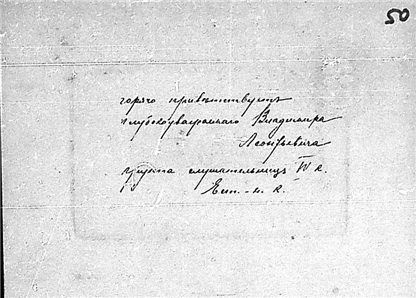 50
горячо приветствуетъ
глубокоуважаемаго Владимира
Леонтьевича
группа слушательницъ VI к.
Ест. - н. к.